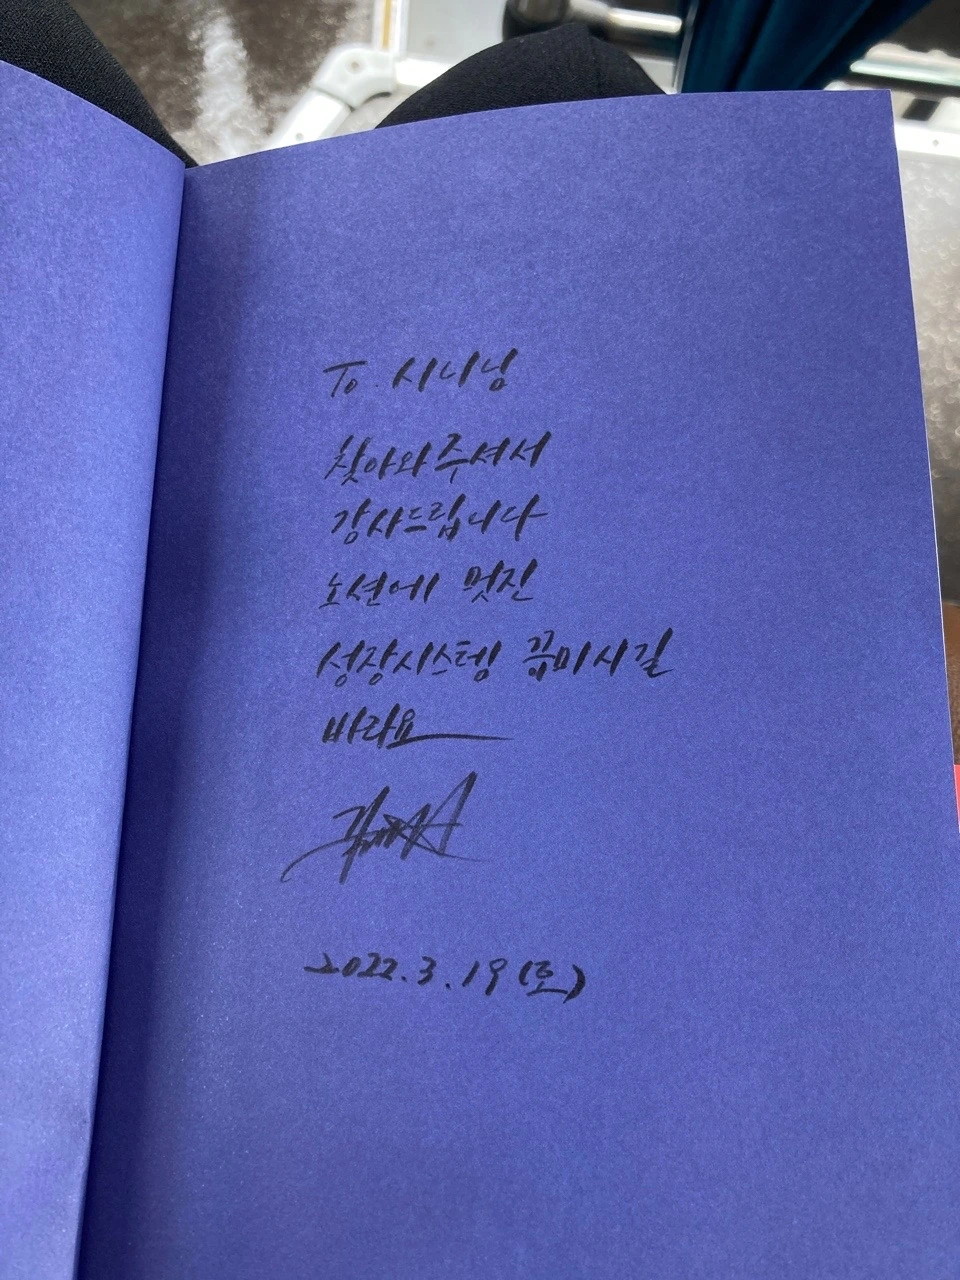 To. 시니님
찾아와주셔서
감사드립니다
노션에 멋진
성장시스템 꾸미시길
바라요
2022.3.19(토)